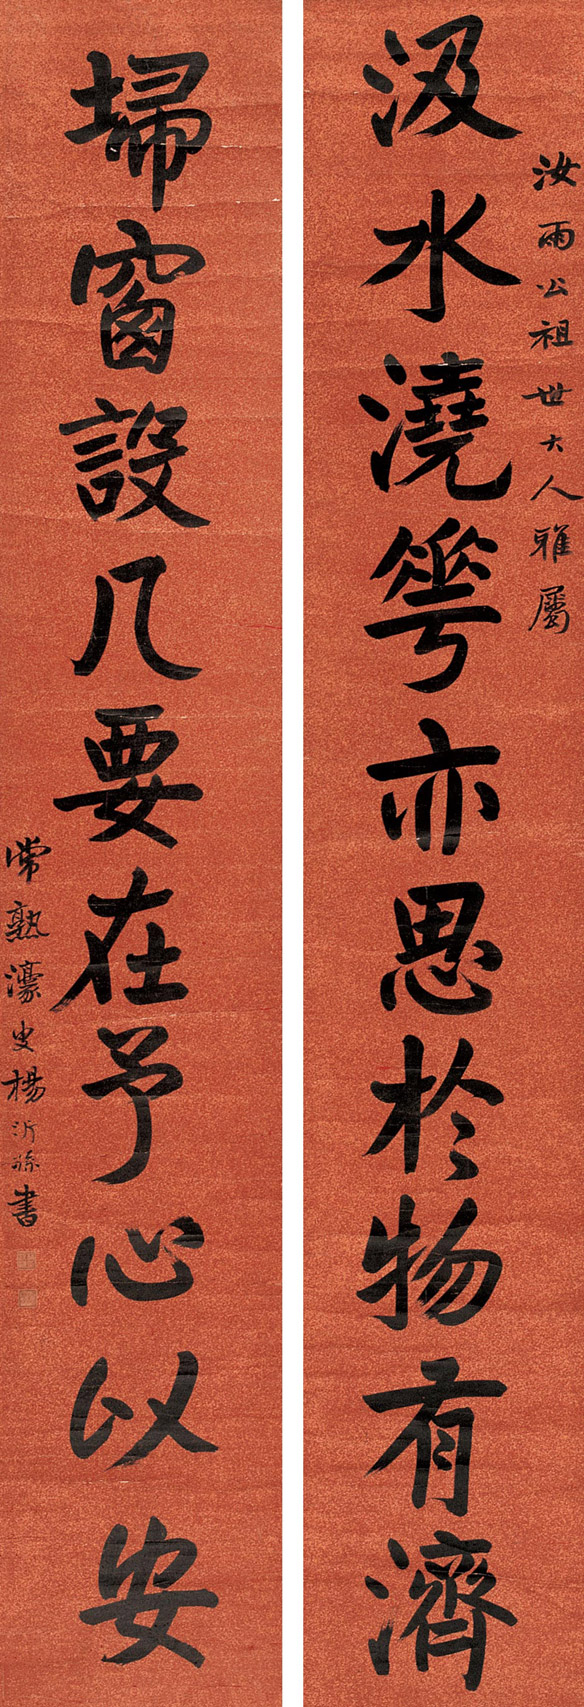 汝雨公祖世大人雅屬
汲水澆花亦思於物有濟
埽窗設几要在予心以安
常熟濠叟楊沂孫書